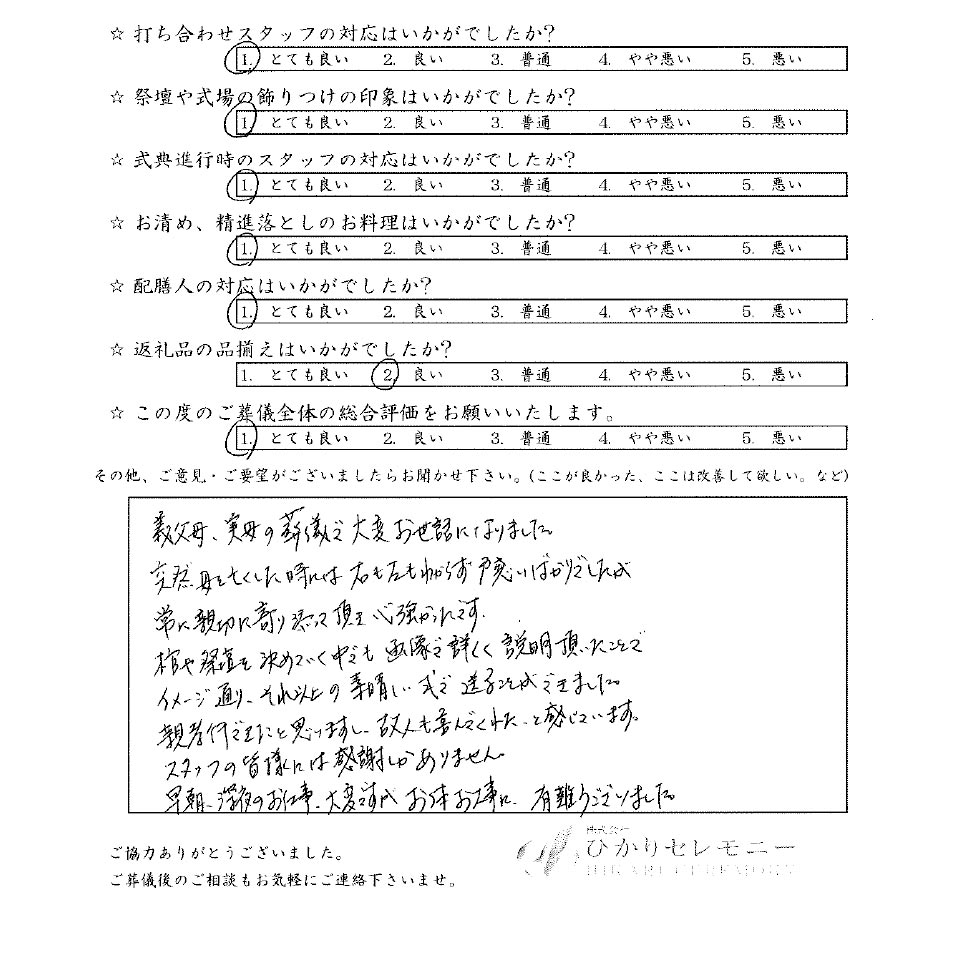 ☆ 打ち合わせスタッフの対応はいかがでしたか?
1. とても良い 2. 良い 3. 普通 4. やや悪い 5. 悪い
☆ 祭壇や式場の飾りつけの印象はいかがでしたか?
1. とても良い 2. 良い 3. 普通 4. やや悪い 5. 悪い
☆ 式典進行時のスタッフの対応はいかがでしたか?
1. とても良い 2. 良い 3. 普通 4. やや悪い 5. 悪い
☆ お清め、精進落としのお料理はいかがでしたか?
1. とても良い 2. 良い 3. 普通 4. やや悪い 5. 悪い
☆ 配膳人の対応はいかがでしたか?
1. とても良い 2. 良い 3. 普通 4. やや悪い 5. 悪い
☆ 返礼品の品揃えはいかがでしたか?
1. とても良い 2. 良い 3. 普通 4. やや悪い 5. 悪い
☆ この度のご葬儀全体の総合評価をお願いいたします。
1. とても良い 2. 良い 3. 普通 4. やや悪い 5. 悪い
その他、ご意見・ご要望がございましたらお聞かせ下さい。(ここが良かった、ここは改善して欲しい。など)
義父母、実母の葬儀で大変お世話になりました。
突然母を亡くした時には右も左もわからず戸惑いばかりでしたが
常に親切に寄り添って頂き心強かったです。
棺や祭壇を決めていく中でも画像で詳しく説明頂いたことで
イメージ通り、それ以上の素晴しい式で送ることができました。
親孝行できたと思いますし、故人も喜んでくれたと感じています。
スタッフの皆様には感謝しかありません。
早朝、深夜のお仕事、大変ですが お仕事に、有難うございました。
ご協力ありがとうございました。
ご葬儀後のご相談もお気軽にご連絡下さいませ。
株式会社
ひかりセレモニー
HIKARI CEREMONY